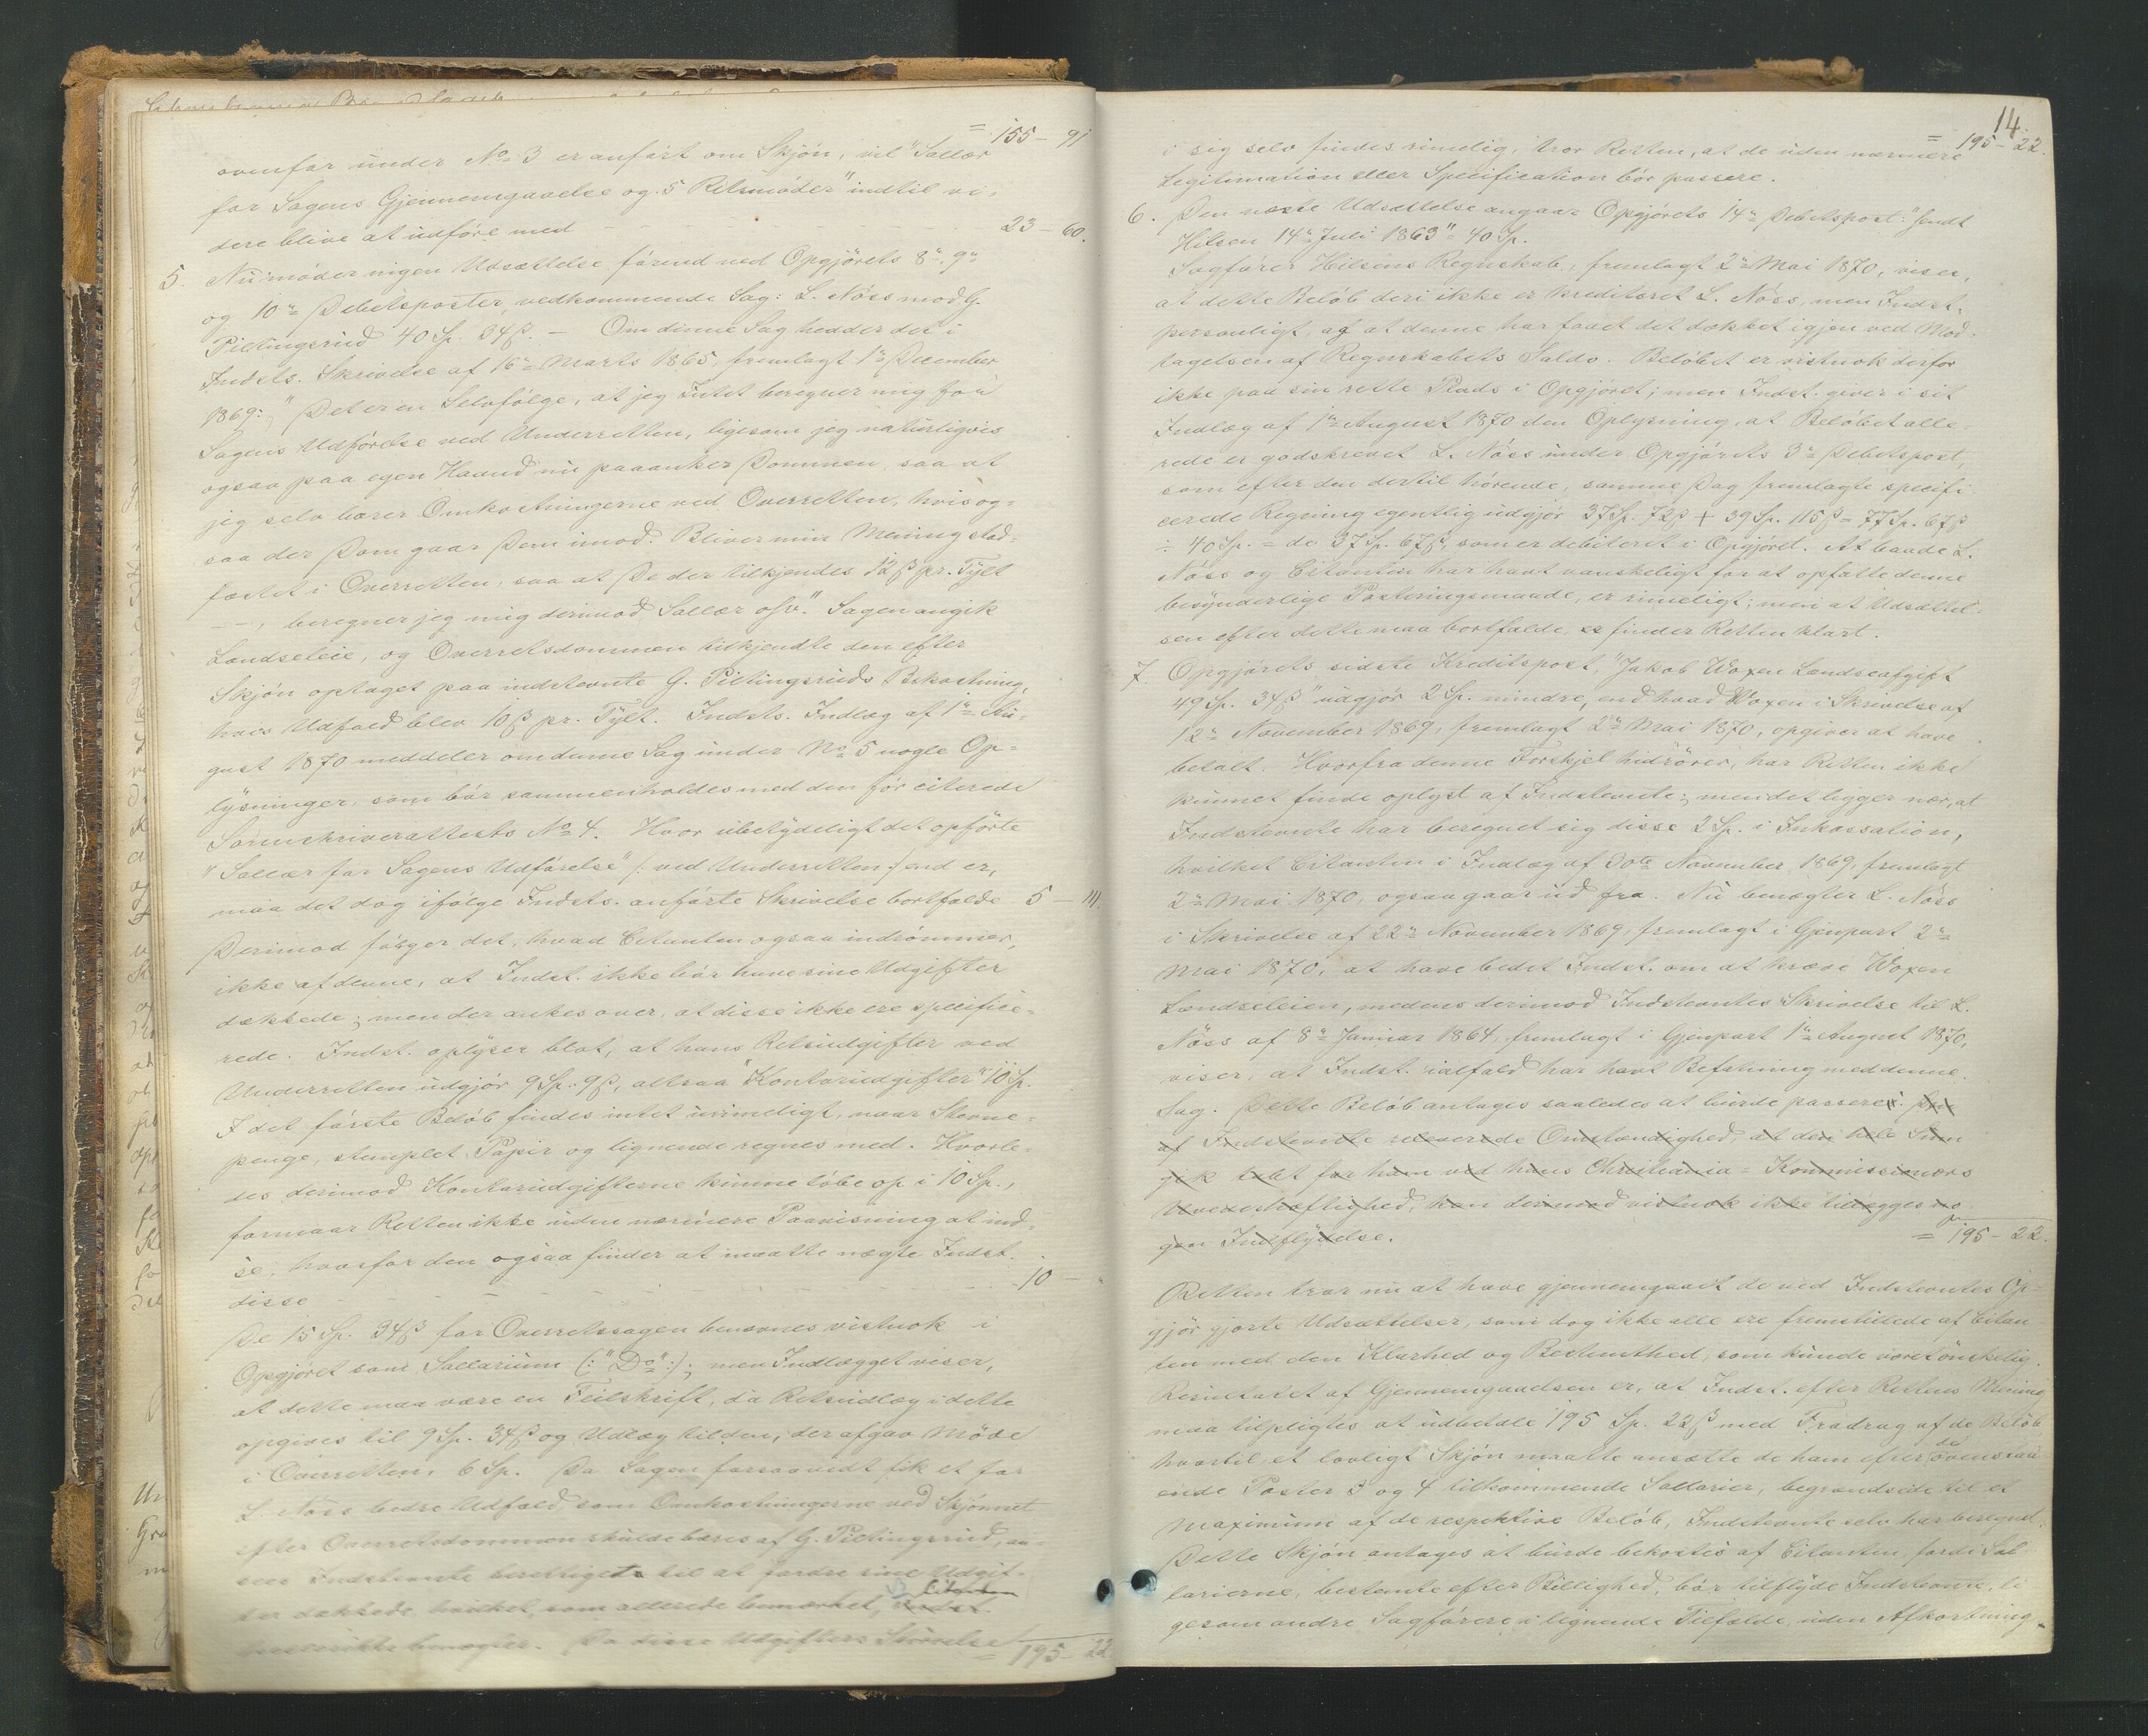 = 155 - 91
ovenfor under No 3 er anført om Skjön, vil "Sallær
for Sagens Gjennemgaaelse og 5 Retsmöder" indtil vi-
dere blive at udföre med - - - 23 - 60.
5. Nu möder nigen Udsættelse förend ved Opgjörets 8de 9de
og 10de Debetsposter, vedkommende Sag: L. Nöss mod G.
Piltingsrud 40 Sp. 34 ß. - Om dinne Sag hedder det i
Indsts. Skrivelse af 16de Marts 1865, fremlagt 1ste December
1869: "Det er en Selvfölge, at jeg Intet beregner mig for
Sagens Udförelse ved Underretten, ligesom jeg naturligvis
ogsaa paa egen Haand nu paaanker Dommen, saa at
jeg selv bærer Omkostningerne ved Overretten, hvis og-
saa der Dom gaar Dem imod. Bliver min Mening stad-
fæstet i Overretten, saa at De der tilkjendes 12 ß pr. Tylt
- -, beregner jeg mig derimod Sallær osv." Sagen angik
Landseleie, og Overretsdommen tilkjendte den efter
Skjön optaget paa indstevnte G. Piltingsruds Bekostning,
hvis Udfald blev 10 ß pr. Tylt. Indsts. Indlæg af 1ste Au-
gust 1870 meddeler om denne Sag under No 5 nogle Op-
lysninger, som bör sammenholdes med den för citerede
Sorenskriverattests No 4. Hvor ubetydeligt det opförte
"Sallær for Sagens Udförelse" (: ved Underretten :) end er,
maa det dog ifölge Indsts. anförte Skrivelse bortfalde 5 - 111.
Derimod fölger det, hvad Citanten ogsaa indrömmer,
ikke af denne, at Indst. ikke bör have sine Udgifter
dækkede; men der ankes over, at disse ikke ere specifice-
rede. Indst. oplyser blot, at hans Retsudgifter ved
Underretten udgjör 9 Sp. 9 ß, altsaa "Kontorudgifter" 10 Sp.
I det förste Belöb findes intet urimeligt, naar Stevne-
penge, stemplet Papir og lignende regnes med. Hvorle-
des derimod Kontorudgifterne kunne löbe op i 10 Sp.,
formaar Retten ikke uden nærmere Paavisning at ind-
se, hvorfor den ogsaa finder at maatte nægte Indst.
disse - - - 10 -
De 15 Sp. 34 ß for Overretssagen benævnes vistnok i
Opgjöret som Sallarium (: "Do" :); men Indlægget viser,
at dette maa være en Feilskrift, da Retsudlæg i dette
opgives til 9 Sp. 34 ß og Udlæg til den, der afgav Möde
i Overretten, 6 Sp. Da Sagen forsaavidt fik et for
L. Nöss bedre Udfald som Omkostningerne ved Skjönnet
efter Overretsdommen skulde bæres af G. Piltingsrud, an-
sees Indstevnte berettiget til at fordre sine Udgif-
ter dækkede, hvilket, som allerede bemærket, Citanten
heller ikke benægter. Da disse Udgifters Störrelse
= 195 - 22
14
= 195 - 22.
i sig selv findes rimelig, tror Retten, at de uden nærmere
Legitimation eller Specification bör passere.
6. Den næste Udsættelse angaar Opgjörets 14de Debetspost: "sendt
Hilsen 14de Juli 1863" 40 Sp.
Sagförer Hilsens Regnskab, fremlagt 2den Mai 1870, viser,
at dette Belöb deri ikke er krediteret L. Nöss, men Indst.
personligt, og at denne har faaet det dækket igjen ved Mod-
tagelsen af Regnskabets Saldo. Belöbet er vistnok derfor
ikke paa sin rette Plads i Opgjöret; men Indst. giver i sit
Indlæg af 1ste August 1870 den Oplysning, at Belöbet alle-
rede er godskrevet L. Nöss under Opgjörets 3de Debetspost,
som efter den dertil hörende, samme Dag fremlagte specifi-
cerede Regning egentlig udgjör 37 Sp. 72 ß + 39 Sp. 115 ß = 77 Sp. 67 ß
÷ 40 Sp. = de 37 Sp. 67 ß, som er debiteret i Opgjöret. At baade L.
Nöss og Citanten har havt vanskeligt for at opfatte denne
besynderlige Posteringsmaade, er rimeligt; men at Udsættel-
sen efter dette maa bortfalde, finder Retten klart.
7. Opgjörets sidste Kreditspost, "Jakob Woxen Landseafgift
49 Sp. 34 ß" udgjör 2 Sp. mindre, end hvad Woxen i Skrivelse af
12te November 1869, fremlagt 2den Mai 1870, opgiver at have
betalt. Hvorfra denne Forskjel hidrörer, har Retten ikke
kunnet finde oplyst af Indstevnte; men det ligger nær, at
Indstevnte har beregnet sig disse 2 Sp. i Inkassation,
hvilket Citanten i Indlæg af 30te November 1869, fremlagt
2den Mai 1870, ogsaa gaar ud fra. Nu benægter L. Nöss
i Skrivelse af 22de November 1869, fremlagt i Gjenpart 2den
Mai 1870, at have bedet Indst. om at kræve Woxen
Landseleien, medens derimod Indstevntes Skrivelse til L.
Nöss af 8de Januar 1864, fremlagt i Gjenpart 1ste August 1870,
viser, at Indst. ialfald har havt Befatning med denne
Sag. Dette Belöb antages saaledes at burde passere. Den
af Indstevnte releverede Omstændighed, at den hele Sum
gik tabt for ham ved hans Christiania-Kommissionærs
Svedershaftighed, kan derimod vistnok ikke tillægges no-
gen Indflydelse.
= 195 - 22.
Retten tror nu at have gjennemgaaet de ved Indstevntes Op-
gjör gjorte Udsættelser, som dog ikke alle ere fremstillede af Citan
ten med den Klarhed og Bestemthed, som kunde været önskelig.
Resultatet af Gjennemgaaelsen er, at Indst. efter Rettens Mening
maa tilpligtes at udbetale 195 Sp. 22 ß med Fradrag af de Belöb
hvortil et lovligt Skjön maatte ansætte de ham efter de ovenstaa
ende Poster 3 og 4 tilkommende Sallarier, begrændsede til et
Maximum af de respektive Belöb, Indstevnte selv har beregnet.
Dette Skjön antages at burde bekostes af Citanten, fordi Sal
larierne, bestemte efter Billighed, bör tilflyde Indstevnte, li
gesom andre Sagförere i lignende Tilfælde, uden Afkortning.